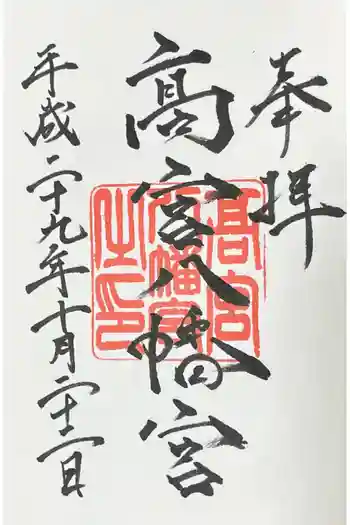 奉拝
高宮八幡宮
髙宮八幡宮之印
平成二十九年十月二十二日